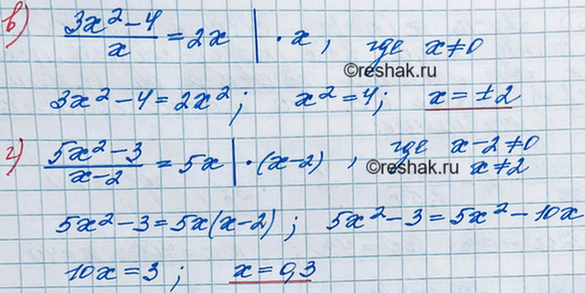 в) (3x²-4)/x = 2x | · x, где x≠0
©reshak.ru
3x²-4=2x²; x²=4; x=±2
г) (5x²-3)/(x-2) = 5x | · (x-2), где x-2≠0
©reshak.ru x≠2
5x²-3=5x(x-2); 5x²-3=5x²-10x
10x=3; x=0,3